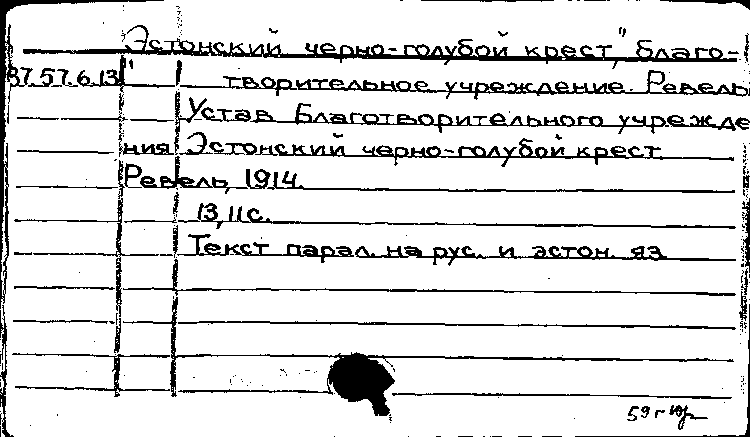 Эстонский черно-голубой крест", Благо-
37.57.6.13 " творительное учреждение. Ревель
Устав Благотворительного учрежде
ния Эстонский черно-голубой крест.
Ревель, 1914.
13, 11 с.
Текст парал. на рус. и эстон. яз
59 г